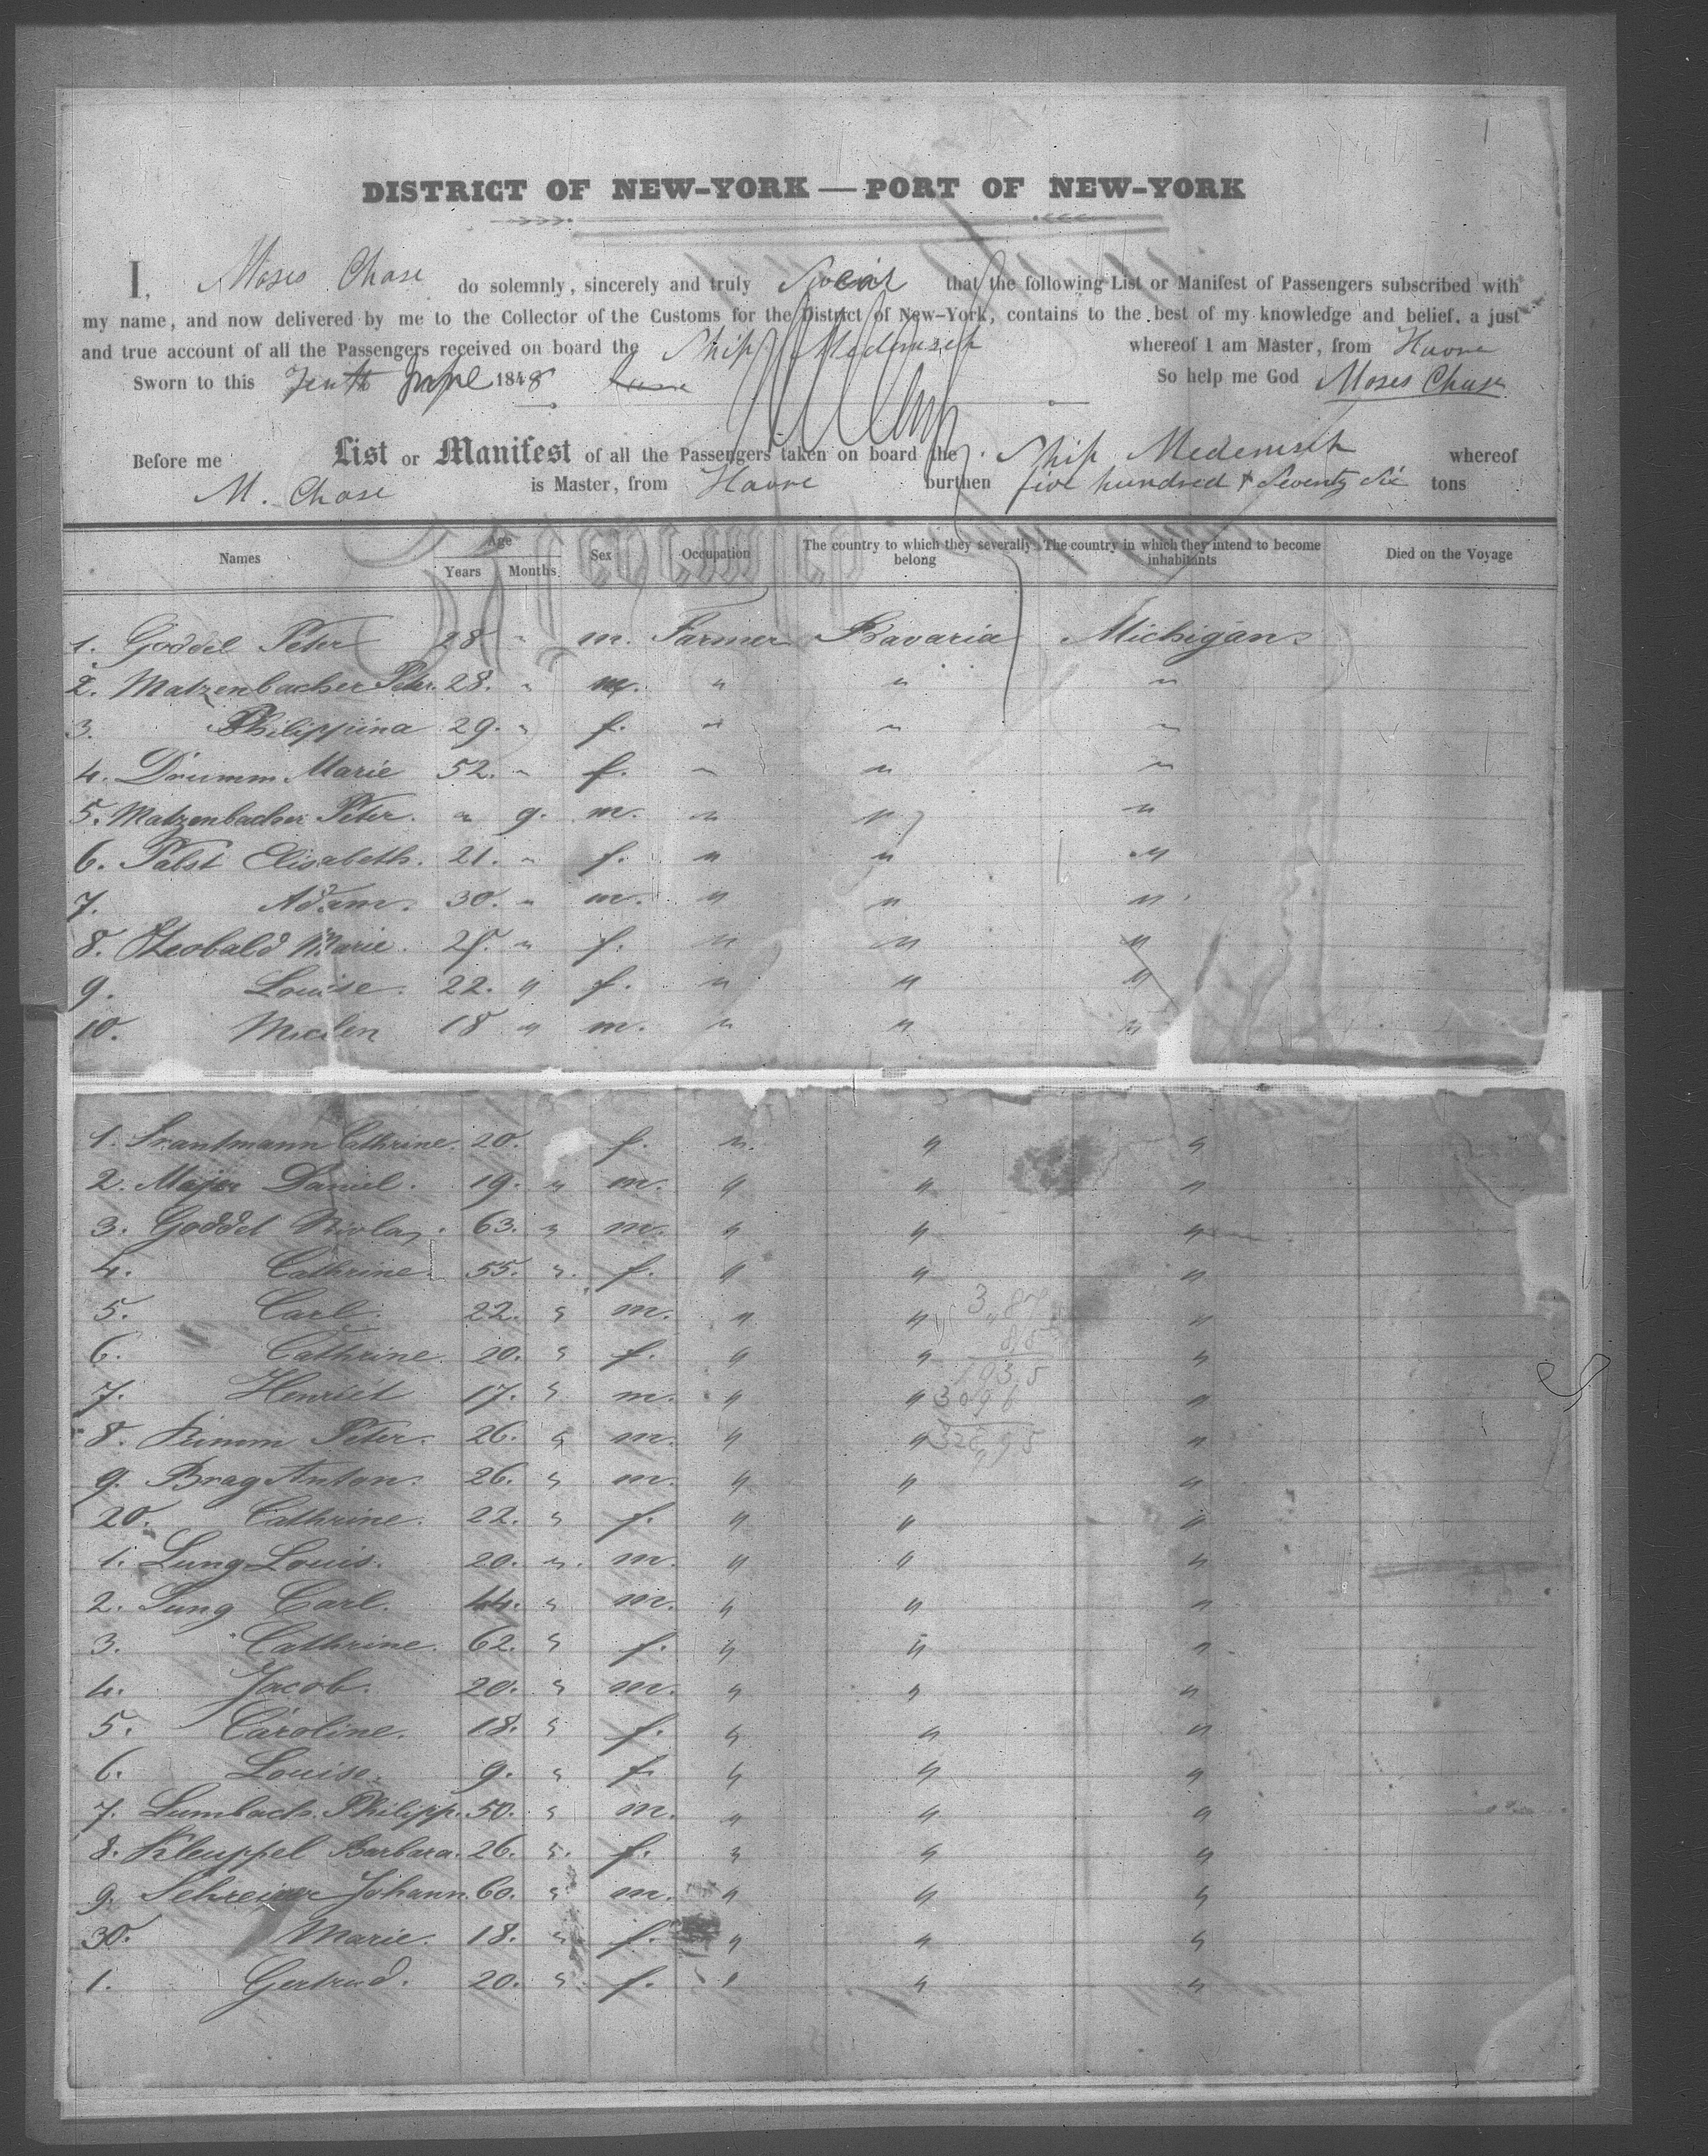 DISTRICT OF NEW-YORK — PORT OF NEW-YORK
I, Moses Chase do solemnly, sincerely and truly Swear that the following List or Manifest of Passengers subscribed with
my name, and now delivered by me to the Collector of the Customs for the District of New-York, contains to the best of my knowledge and belief, a just
and true account of all the Passengers received on board the Ship Medemseh whereof I am Master, from Havre
Sworn to this Tenth June 1848 So help me God Moses Chase
Before me List or Manifest of all the Passengers taken on board the Ship Medemseh whereof
M. Chase is Master, from Havre burthen five hundred & Seventy Six tons
Names Age Years Months Sex Occupation The country to which they severally belong The country in which they intend to become inhabitants Died on the Voyage
1. Göddel Peter 28. " m. Farmer Bavaria Michigan
2. Matzenbacher Peter. 28. " m. " " "
3. Philippina 29. " f. " " "
4. Drumm Marie 52. " f. " " "
5. Matzenbacher Peter. " 9. m. " " "
6. Pabst Elisabeth. 21. " f. " " "
7. Adam. 30. " m. " " "
8. Theobald Marie. 25. " f. " " "
9. Louise. 22. " f. " " "
10. 18 " m. " " "
1. Trantmann Cathrine. 20. f. " " "
2. Major Daniel. 19. " m. " " "
3. Goddel Nicolas. 63. " m. " " "
4. Cathrine. 55. " f. " " "
5. Carl. 22. " m. " " "
3,87
6. Cathrine. 20. " f. " " "
85
1935
7. Henriet 17. " m. " " "
3096
8. Peter. 26. " m. " " "
9. Brag Anton. 26. " m. " " "
20. Cathrine. 22. " f. " " "
1. Lung Louis. 20. " m. " " "
2. Lung Carl. 44. " m. " " "
3. Cathrine. 62. " f. " " "
4. Jacob. 20. " m. " " "
5. Caroline. 18. " f. " " "
6. Louise. 9. " f. " " "
7. Lumbach Philipp. 50. " m. " " "
8. Kleuppel Barbara. 26. " f. " " "
9. Schreiner Johann. 60. " m. " " "
30. Marie. 18. " f. " " "
1. Gertrud. 20. " f. " " "